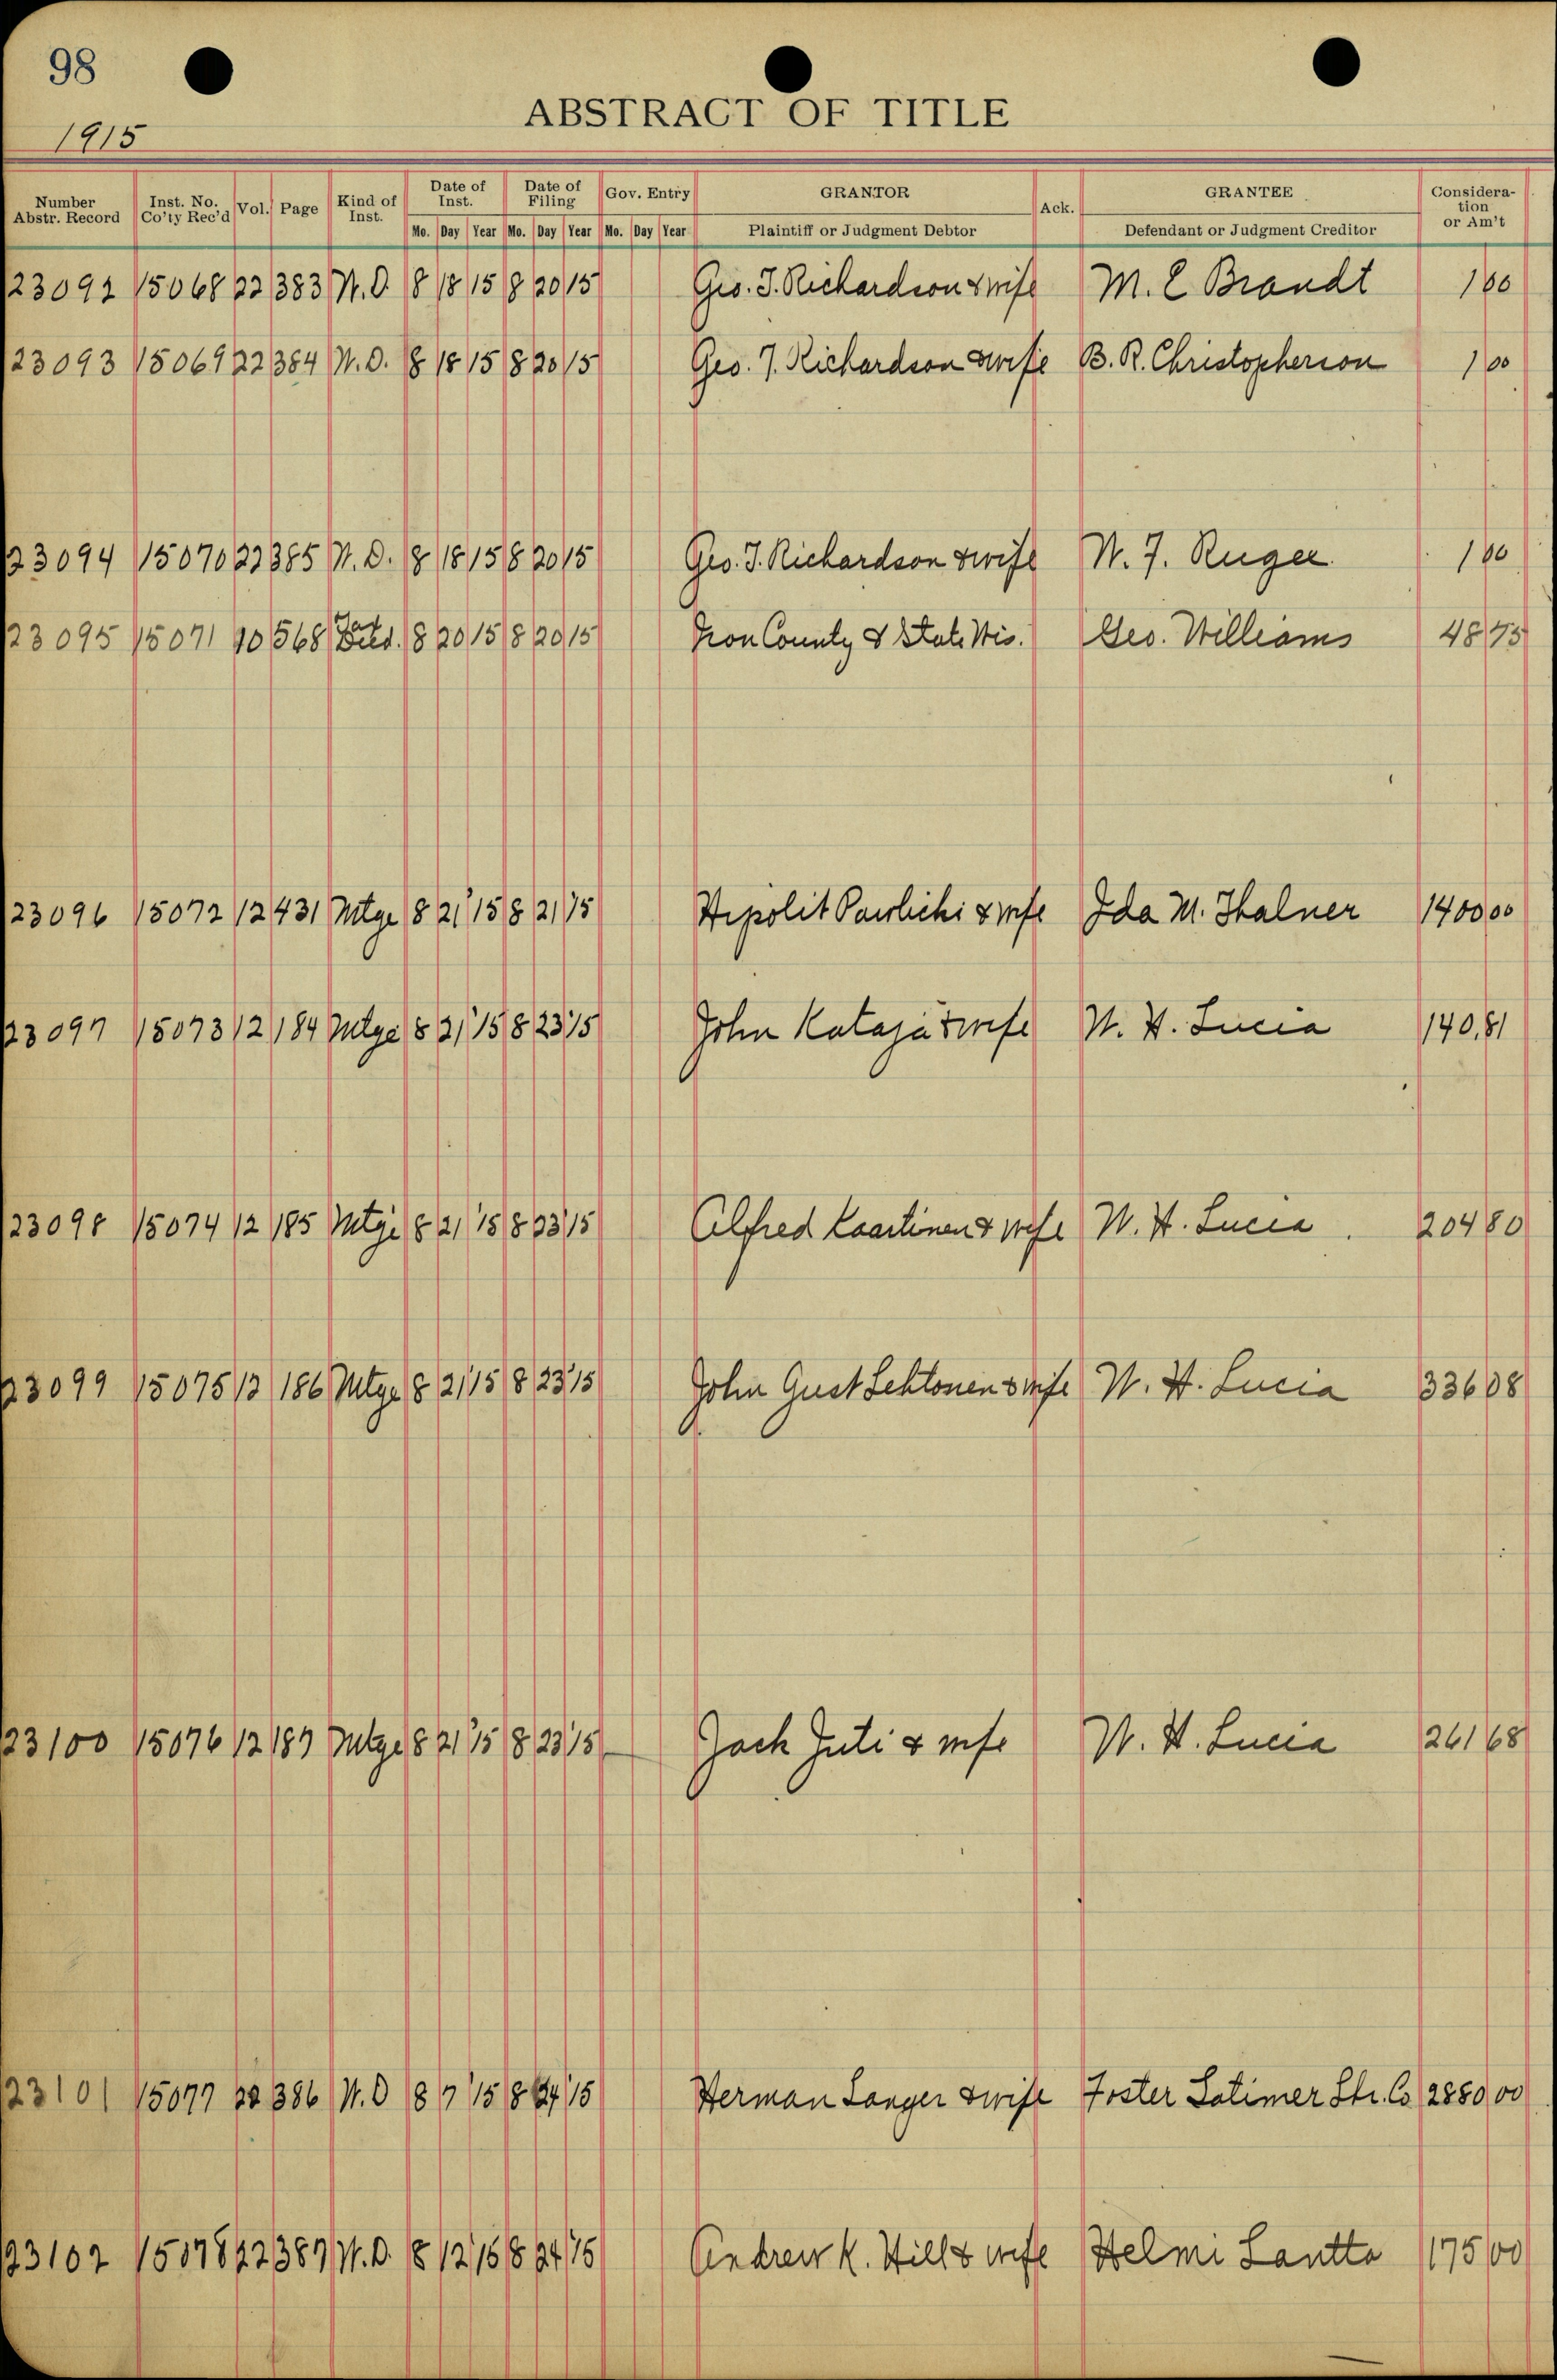 98
ABSTRACT OF TITLE
1915
Number Abstr. Record Inst. No. Co'ty Rec'd Vol. Page Kind of Inst. Date of Inst. Date of Filing Gov. Entry GRANTOR Ack. GRANTEE Consideration or Am't
Mo. Day Year Mo. Day Year Mo. Day Year Plaintiff or Judgment Debtor Defendant or Judgment Creditor
23092 15068 22 383 W.D. 8 18 15 8 20 15 Geo. T. Richardson & wife M. E Brandt 1 00
23093 15069 22 384 W.D. 8 18 15 8 20 15 Geo. T. Richardson & wife B. R. Christopherson 1 00
23094 15070 22 385 W.D. 8 18 15 8 20 15 Geo. T. Richardson & wife W. F. Ruger 1 00
23095 15071 10 568 Tax Deed. 8 20 15 8 20 15 Iron County & State Wis. Geo. Williams 48 75
23096 15072 12 431 Mtge 8 21 15 8 21 15 Hipolit Pawlicki & wife Ida M. Thalner 1400 00
23097 15073 12 184 Mtge 8 21 15 8 23 15 John Kataja & wife W. H. Lucia 140,81
23098 15074 12 185 Mtge 8 21 15 8 23 15 Alfred Kaartinen & wife W. H. Lucia 204 80
23099 15075 12 186 Mtge 8 21 15 8 23 15 John Gust Lehtonen & wife W. H. Lucia 336 08
23100 15076 12 187 Mtge 8 21 15 8 23 15 Jack Juti & wife W. H. Lucia 261 68
23101 15077 22 386 W.D 8 7 15 8 24 15 Herman Langer & wife Foster Latimer Lbr. Co 2880 00
23102 15078 22 387 W.D. 8 12 15 8 24 15 Andrew K. Hill & wife Helmi Lantta 175 00